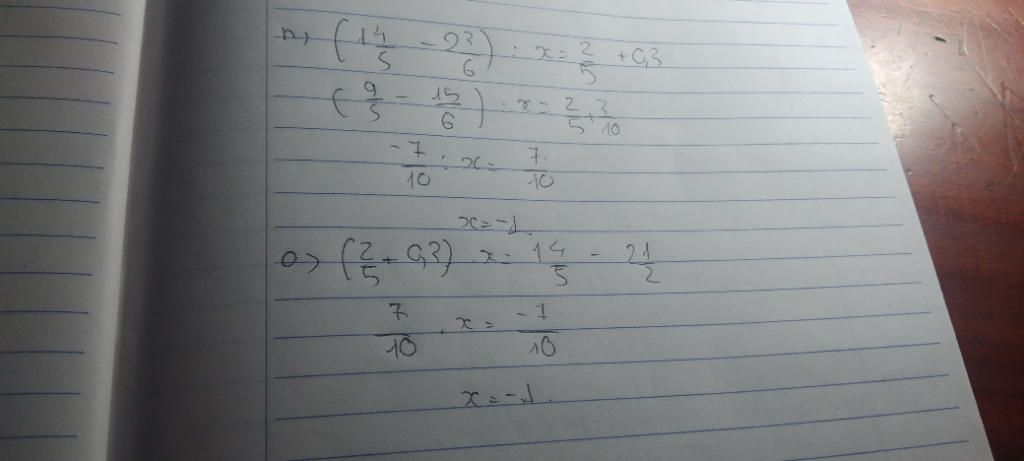 n) (1 4/5 - 2 3/6) : x = 2/5 + 0,3
(9/5 - 15/6) : x = 2/5 + 3/10
-7/10 : x = 7/10
x = -1
o) (2/5 + 0,3) . x = 1 4/5 - 2 1/2
7/10 . x = -7/10
x = -1.